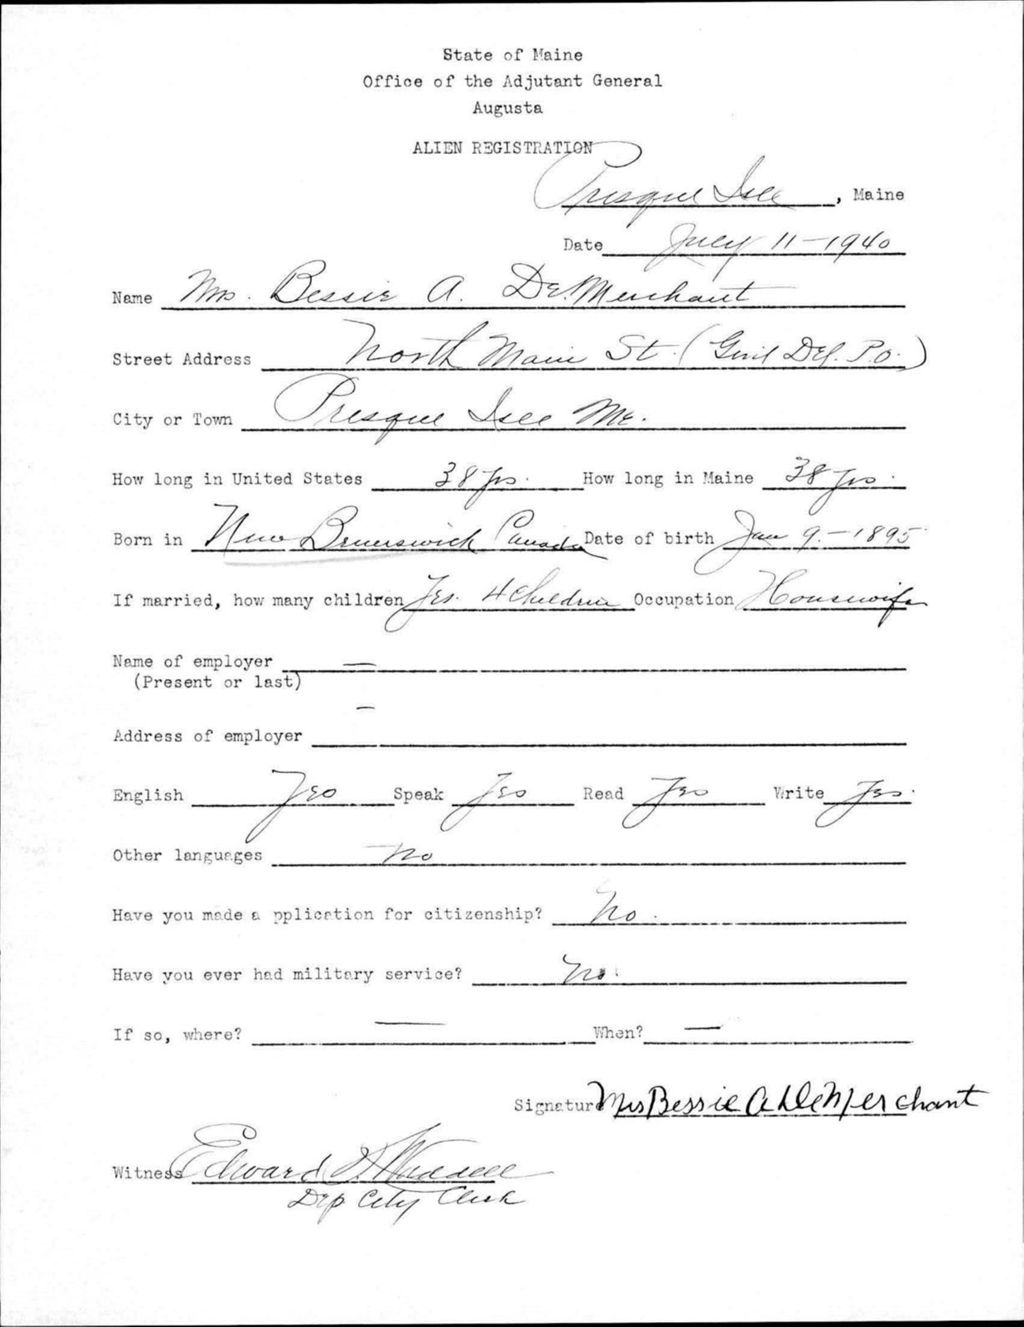 State of Maine
Office of the Adjutant General
Augusta
ALIEN REGISTRATION
Presque Isle, Maine
Date July 11-1940
Name Mrs. Bessie A. DeMerchant
Street Address North Main St. (Genl Del. P.O.)
City or Town Presque Isle Me.
How long in United States 38 yrs. How long in Maine 38 yrs.
Born in New Brunswick Canada Date of birth Jan 9.-1895
If married, how many children Yes. 4 Children Occupation Housewife
Name of employer —
(Present or last)
Address of employer —
English Yes Speak Yes Read Yes Write Yes.
Other languages No
Have you made a pplication for citizenship? No.
Have you ever had military service? No.
If so, where? — When? —
Signature Mrs Bessie A DeMerchant
Witness Edward Waddell
Dep City Clerk